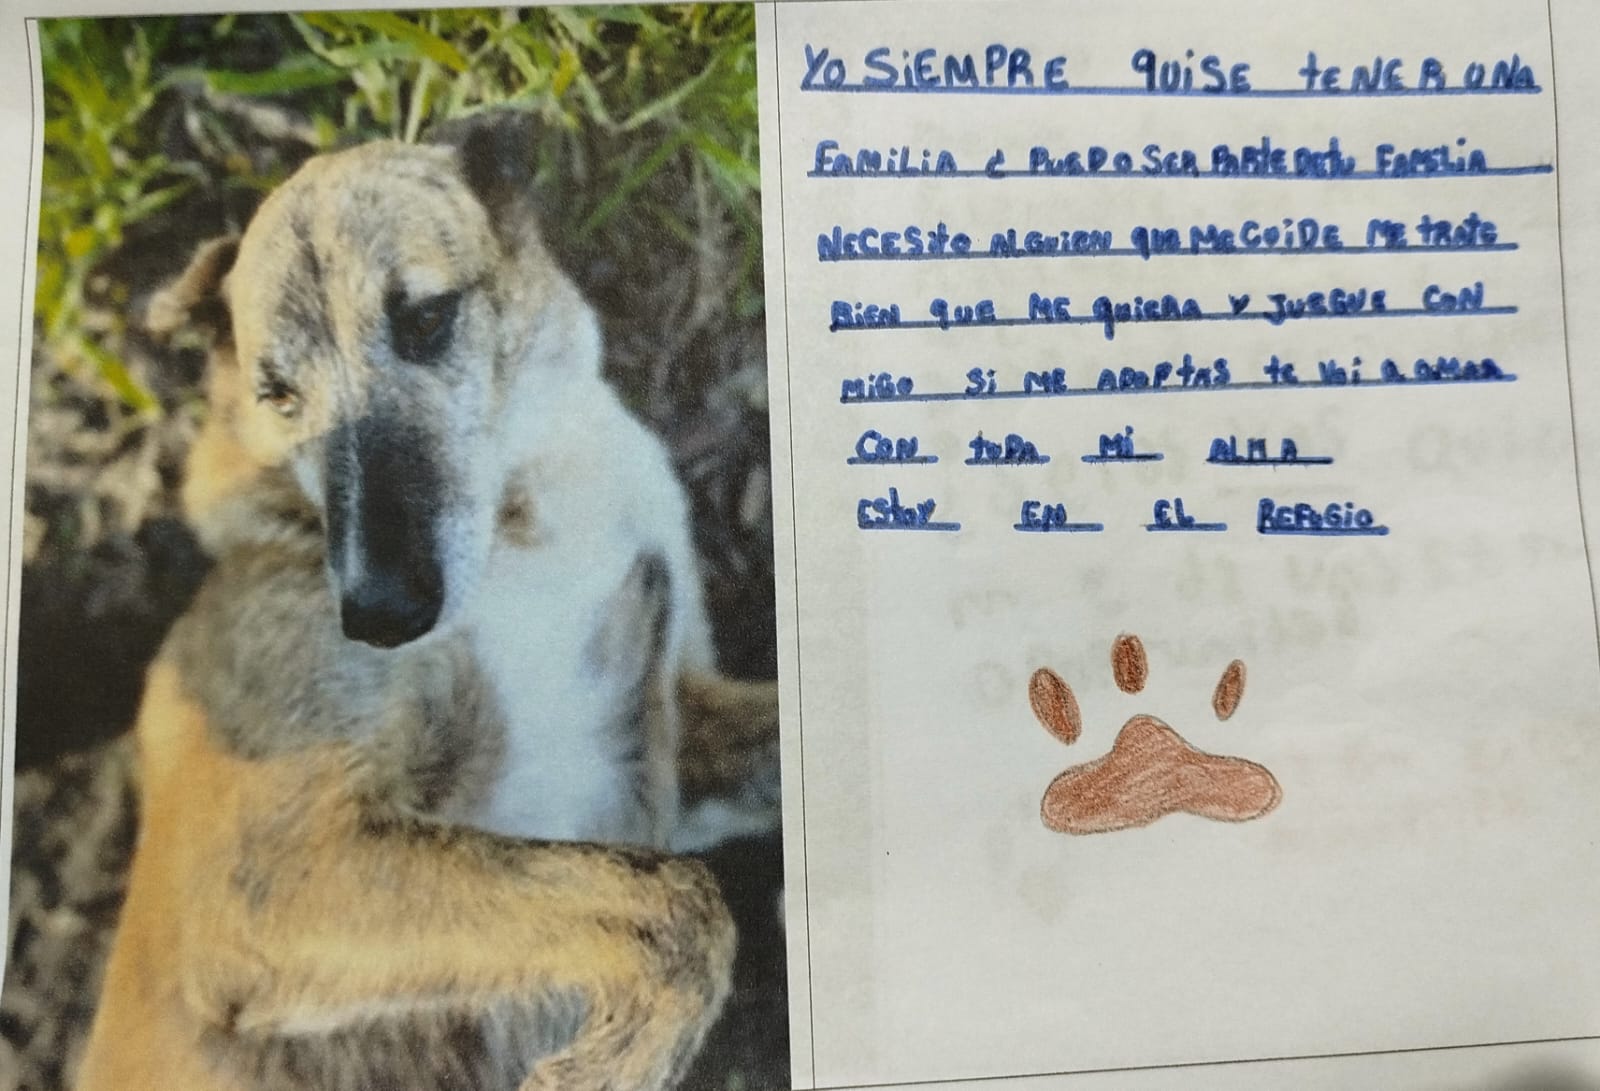 YO SiEMPRE quiSE tENER UNa
FamiLia ¿ PUEDO SER PARtE DEtu FAMiLia
NECESito ALGuiEN quE ME CUiDE ME tRAtE
BiEN quE ME quiERA Y JUEGUE CON
MiGO Si ME ADOPtAS tE Voi A AMAR
CON toDA Mi ALMA
EStoY EN EL REFUGiO